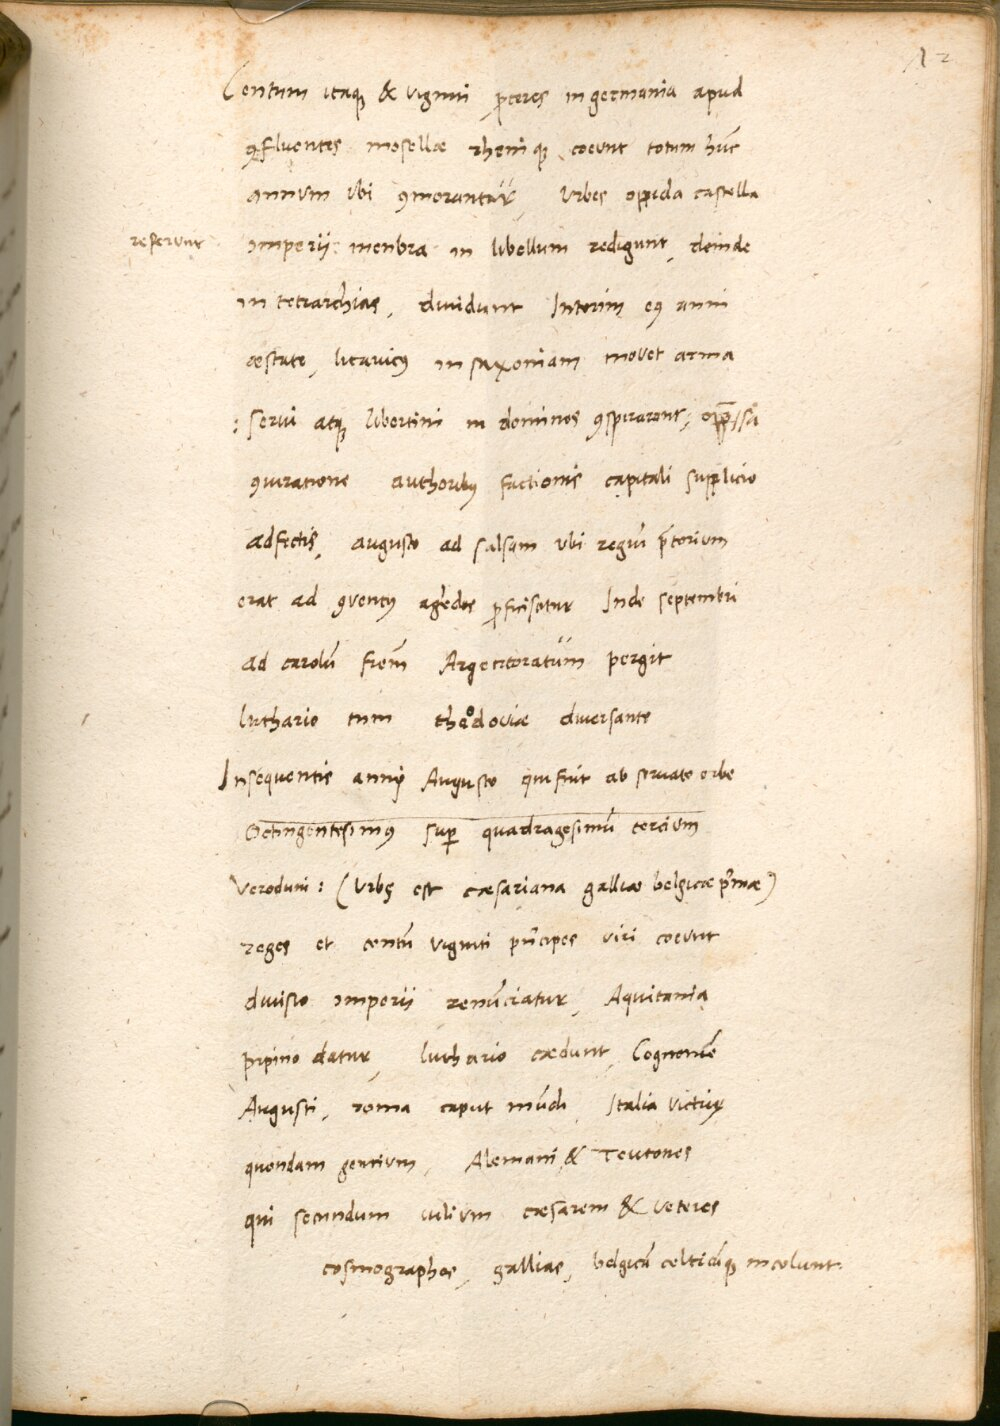 12
Centum itaq₃ & viginti ꝓceres in germania apud
ꝯfluentes mosellae rheniq₃ coeunt totum hūc
annum ubi ꝯmorantur, Urbes oppida castella
referunt imperii menbra in libellum redigunt, deinde
in tetrarchias, dividunt Interim eiꝰ anni
aestate, litavicꝰ in saxoniam movet arma
: servi atq₃ libertini in dominos ꝯspirarant, opp̄ssa
ꝯiuratione authoribꝰ factionis capitali supplicio
adfectis, augusto ad salsam ubi regiū p̄torium
erat ad ꝯventꝰ agēdos ꝓficiscitur Inde septembri
ad carolū frēm Argentoratum pergit
luthario tum theodoviae diversante
Insequentis anni Augusto qui fuit ab servato orbe
Octingentesimꝰ super quadragesimū tertium
Veroduni : (Urbs est caesariana galliae belgicae prīmae)
reges et centū viginti prīcipes viri coeunt
divisio imperii renūciatur, Aquitania
pipino datur, luthario caedunt, Cognomē
Augusti, roma caput mūdi, Italia victrix
quondam gentium, Alemani, & Teutones
qui secundum iulium caesarem & veteres
cosmographos, gallias, belgicā celticāq₃ incolunt.